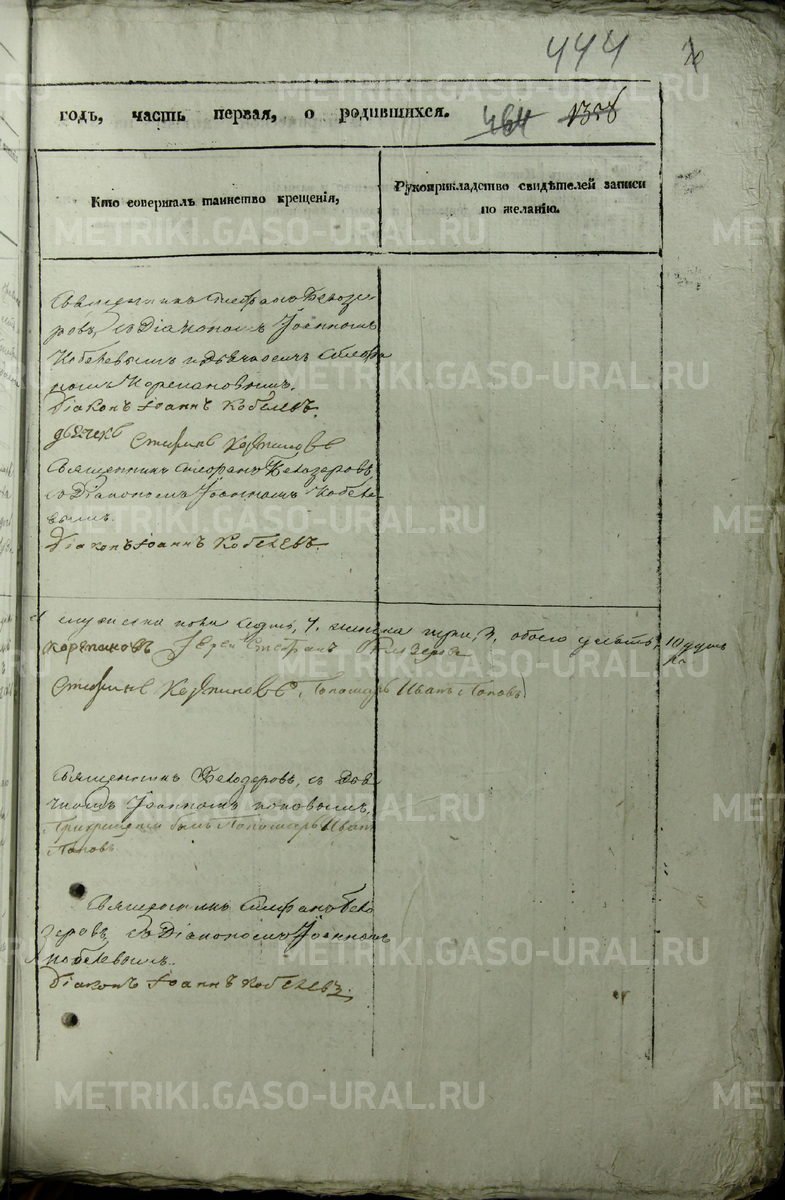 444
годъ, часть первая, о родившихся. 464 1378
Кто совершалъ таинство крещенія,
Рукоприкладство свидѣтелей записи
по желанію.
Священникъ Стефанъ Белозе-
ровъ, съ Діакономъ Іоанномъ
Кобелевымъ и дьячкомъ Стефа
номъ Корепановымъ.
Діаконъ Іоаннъ Кобелевъ.
дьячекъ Стефанъ Карѣпановъ
Священникъ Стефанъ Белозеровъ
съ Діакономъ Іоанномъ Кобеле-
вымъ.
Діаконъ Іоаннъ Кобелевъ.
мужеска пола семь, 7. женска три, 3, обоего десять, 10 душъ
Карѣпановъ Іерей Стефанъ Белозеровъ
Стефанъ Карѣпановъ, Пономарь Иванъ Поповъ
Священникъ Белозеровъ, съ
Іоанномъ Поповымъ.
При крещеніи былъ Пономарь Иванъ
Поповъ
Священникъ Стефанъ Бело
зеровъ съ Діакономъ Іоанномъ
Кобелевымъ.
Діаконъ Іоаннъ Кобелевъ.
METRIKI.GASO-URAL.RU